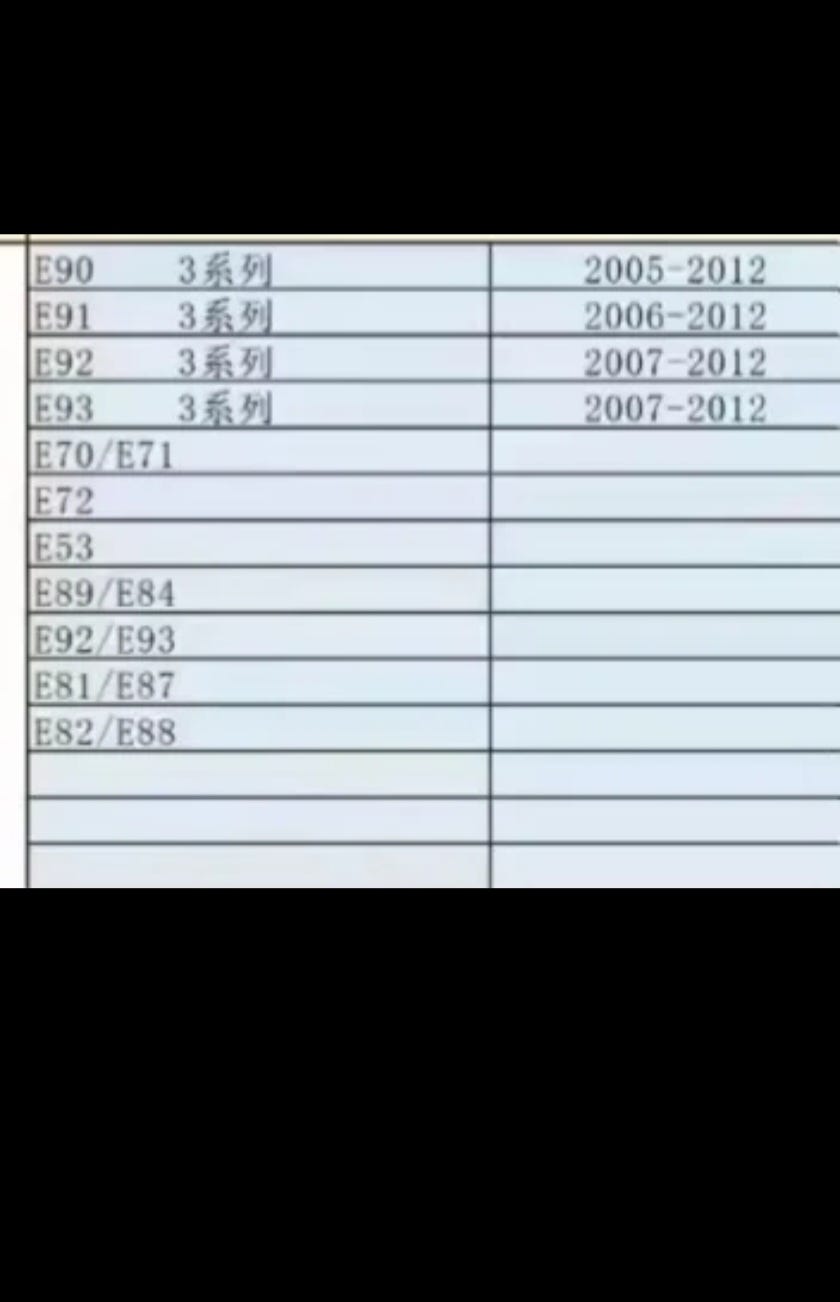 E90 3系列 2005-2012
E91 3系列 2006-2012
E92 3系列 2007-2012
E93 3系列 2007-2012
E70/E71
E72
E53
E89/E84
E92/E93
E81/E87
E82/E88